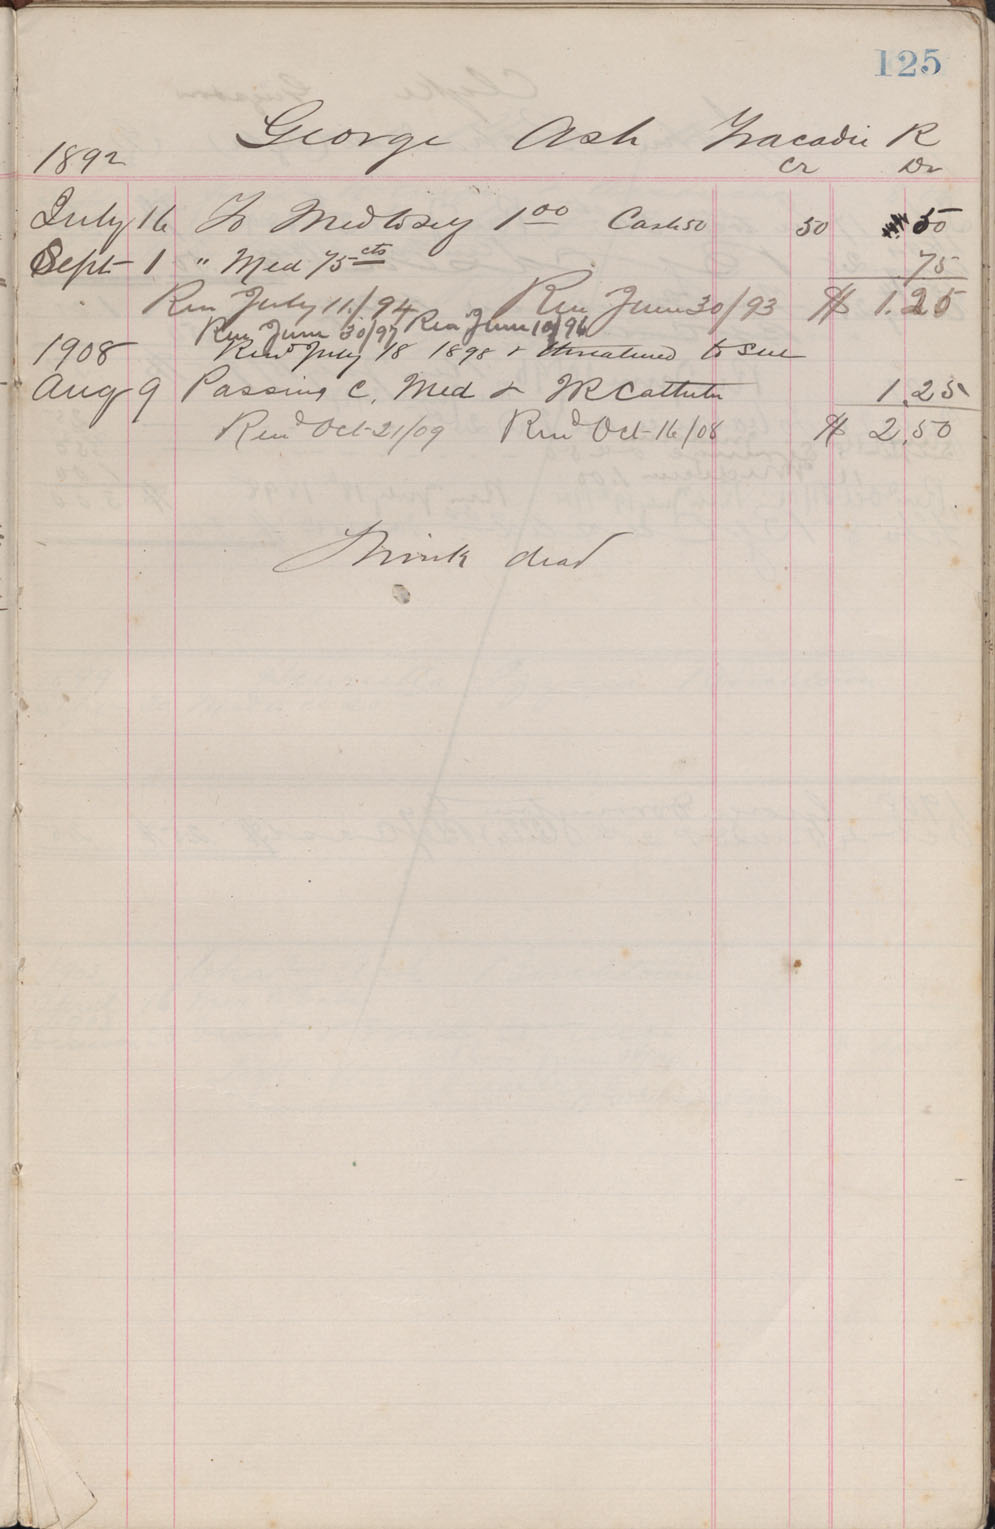 125
George Ash Tracadie R
1892 Cr Dr
July 16 To Med to self 1 00 Cash 50 50 50
Sept 1 " Med 75 cts 75
Ren July 11/94 Ren June 30/93 $ 1.25
Ren June 30/97 Ren June 10/96
1908 Rend July 18 1898 & threatened to sue
Aug 9 Passing C, Med & Catheter 1.25
Rend Oct-21/09 Rend Oct-16/08 $ 2.50
Think dead